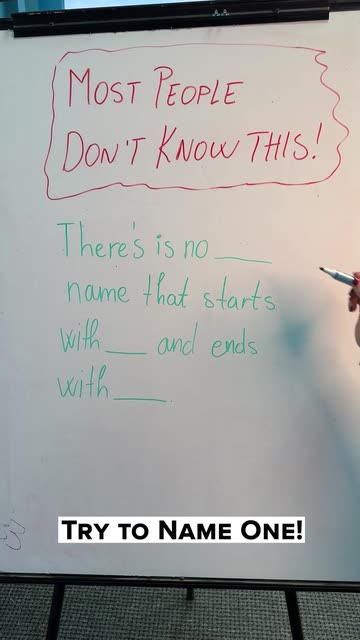 MOST PEOPLE
DON'T KNOW THIS!
There's is no ____
name that starts
with ___ and ends
with ____.
TRY TO NAME ONE!